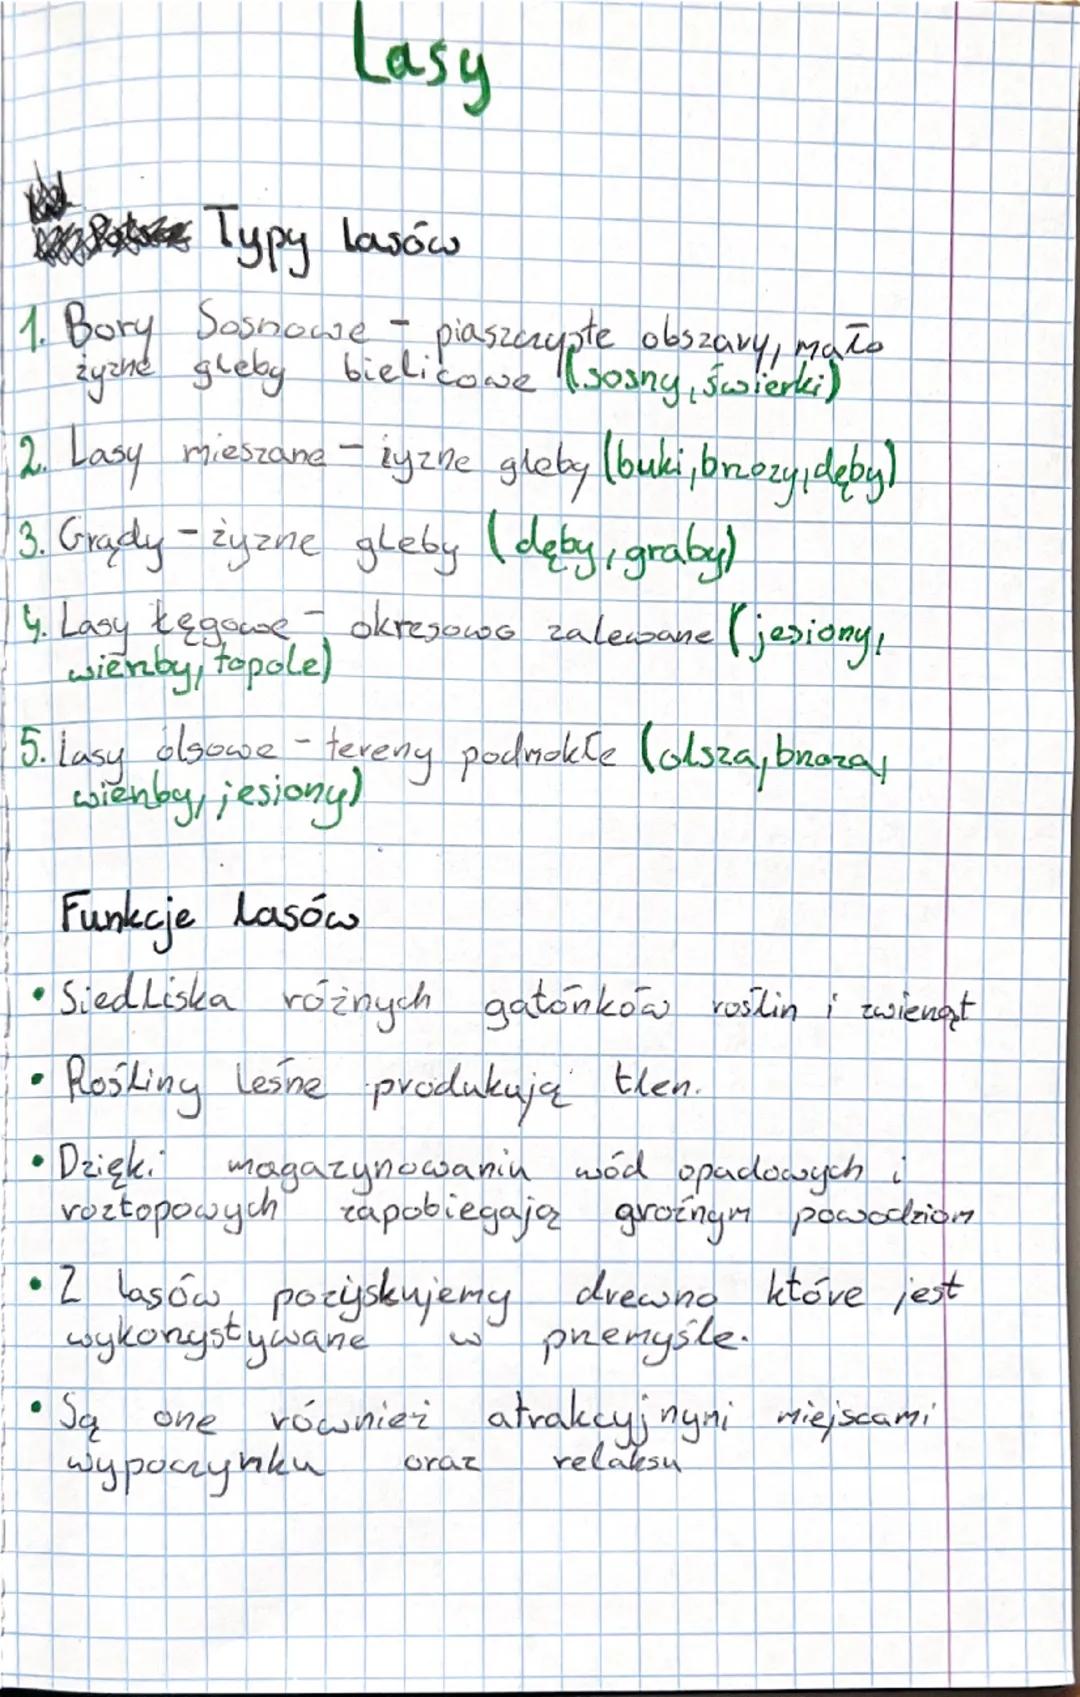 Lasy
Typy lasów
1. Bory Sosnowe - piaszczyste obszary, mało
żyzne gleby bielicowe (sosny, świerki)
2. Lasy mieszane - żyzne gleby (buki, brzozy, dęby)
3. Grądy - żyzne gleby (dęby, graby)
4. Lasy łęgowe - okresowo zalewane (jesiony,
wierzby, topole)
5. Lasy olsowe - tereny podmokłe (olsza, brzoza,
wierzby, jesiony)
Funkcje lasów
• Siedliska różnych gatónków roślin i zwierząt
• Rośliny leśne produkują tlen.
• Dzięki magazynowaniu wód opadowych i
roztopowych zapobiegają groźnym powodziom
• Z lasów pozyskujemy drewno które jest
wykorzystywane w przemyśle.
• Są one również atrakcyjnymi miejscami
wypoczynku oraz relaksu